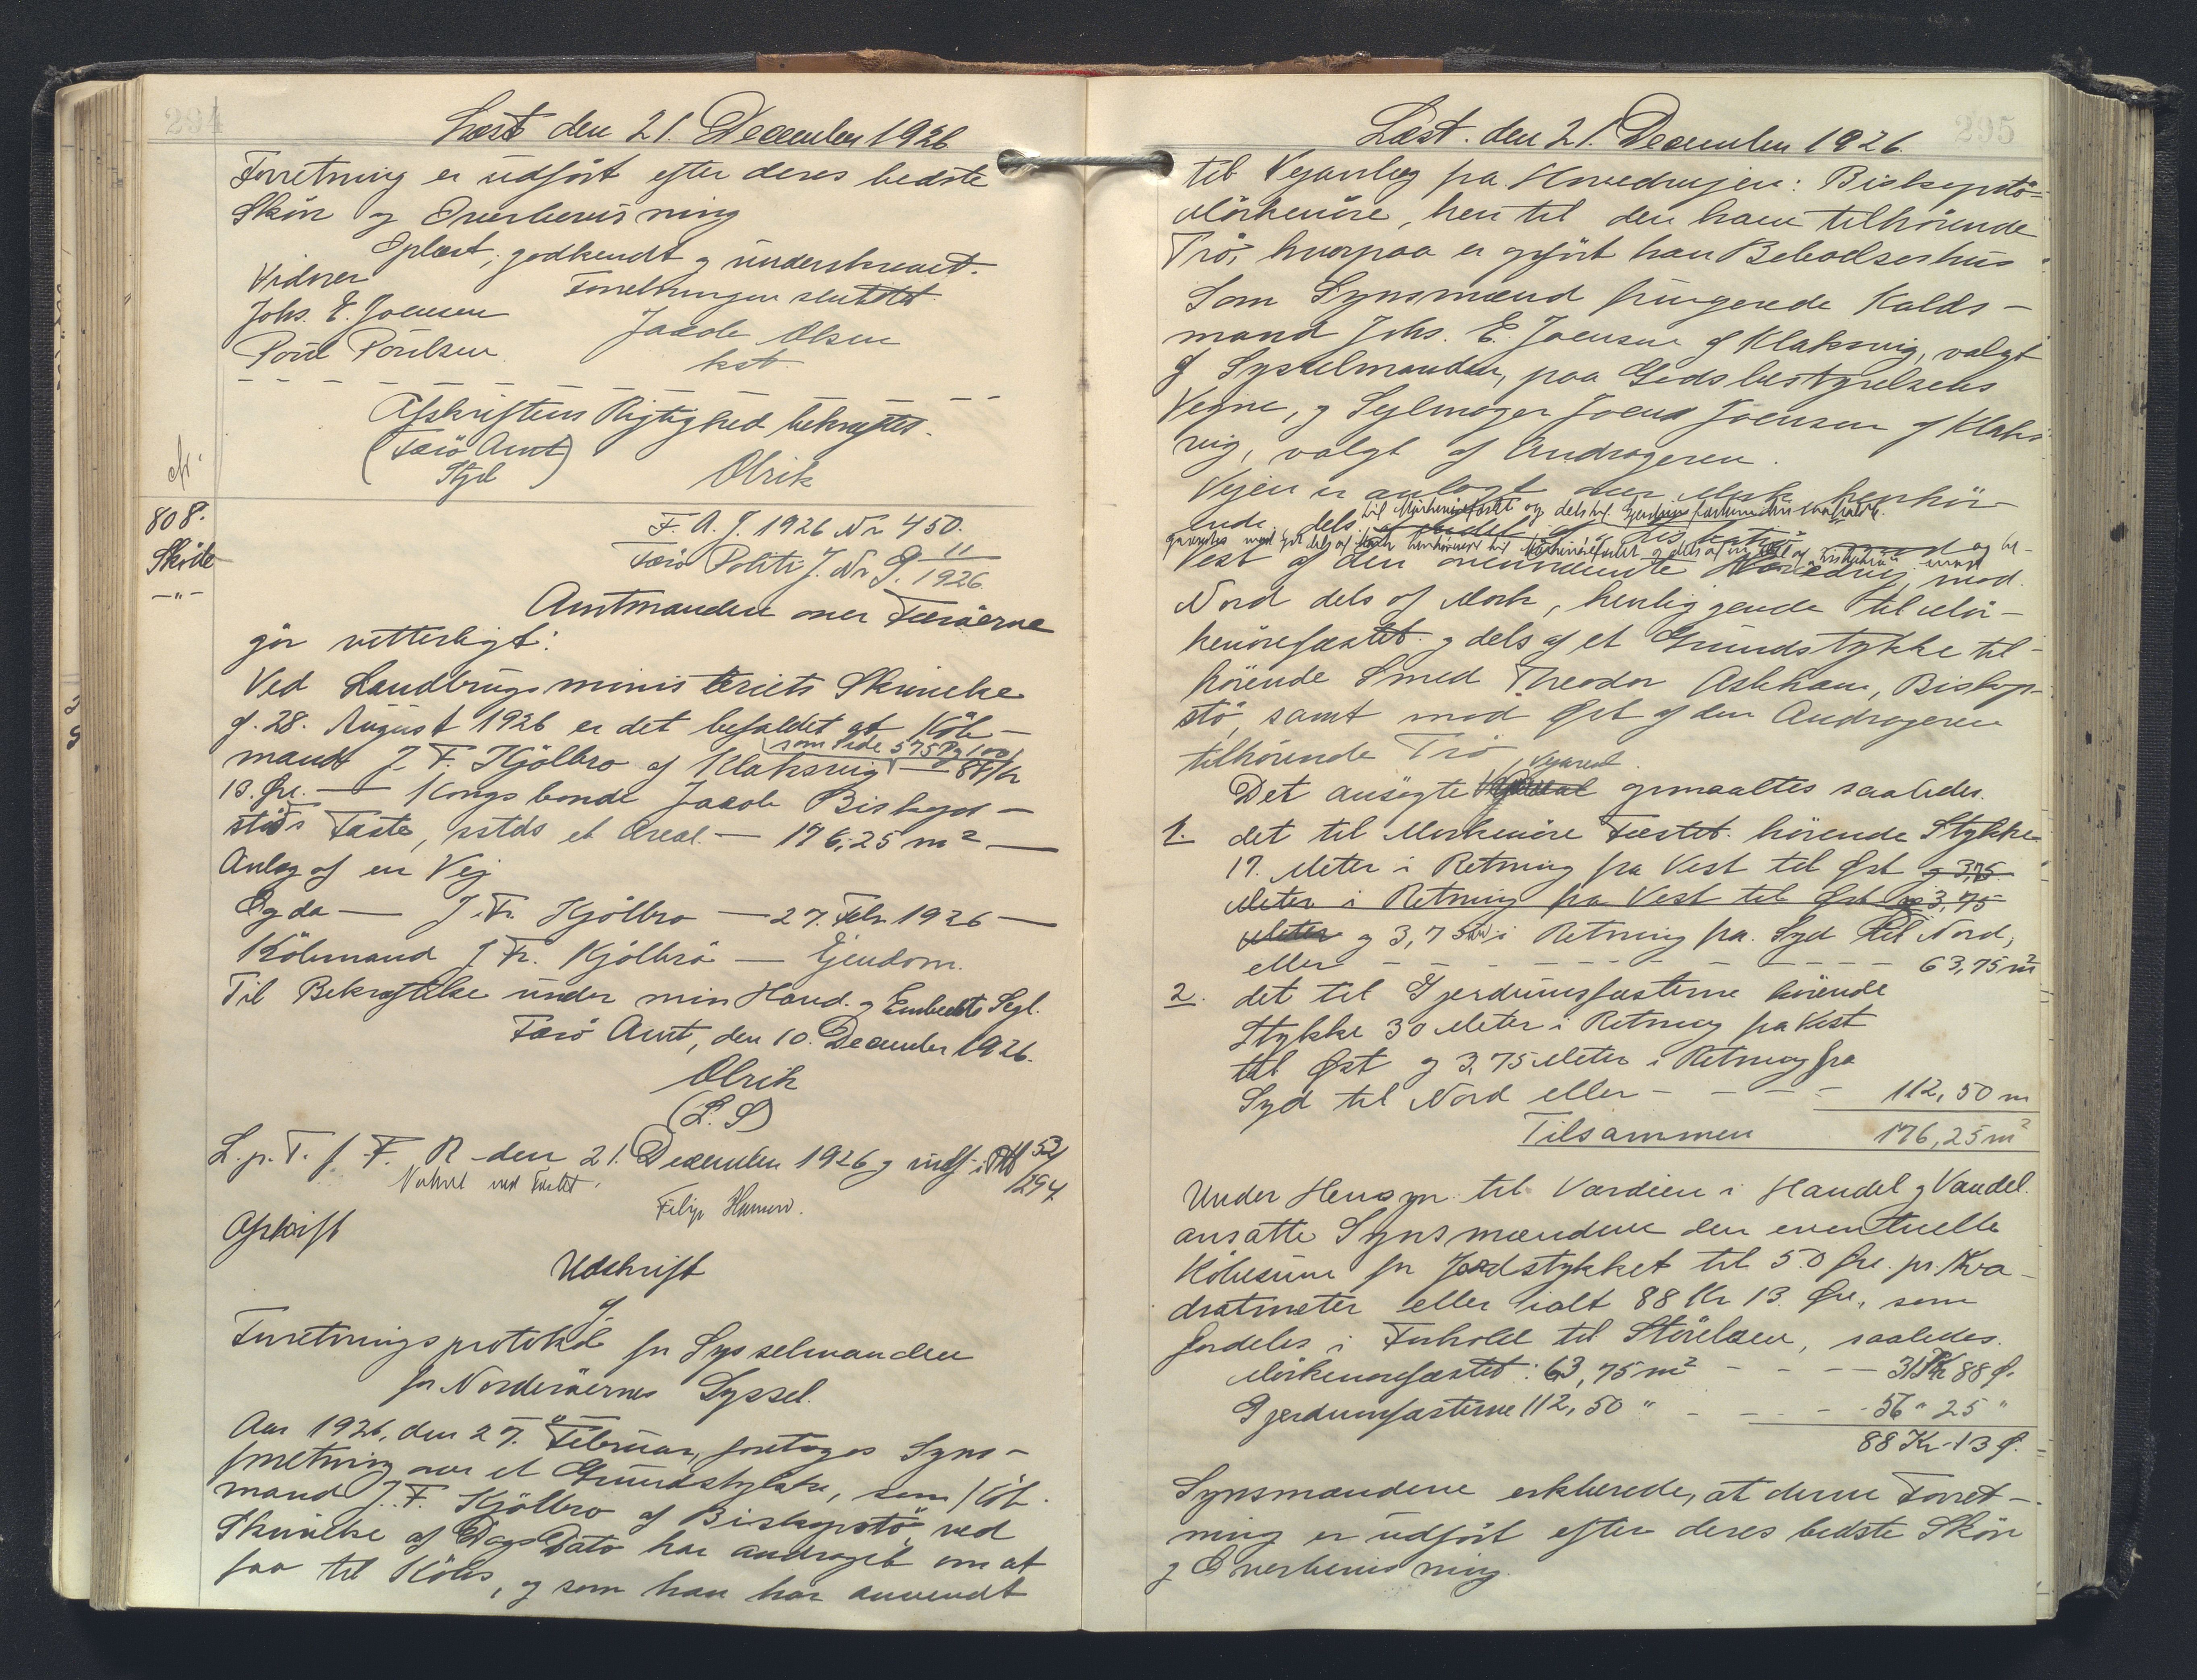 294
Læst den 21. December 1926
Forretning er udført efter deres bedste
Skön og Overbevisning
Oplæst, godkendt og underskrevet.
Vidner
Forretningen sluttet
Johs. E. Joensen
Jacob Olsen
Poul Poulsen
kst.
Afskriftens Rigtighed bekræftes.
(Færö Amt)
Sgl
Olrik
808.
Sköde
-"-
F. A. J. 1926 Nr 450.
Færö Politi J. Nr G. 11/1926.
Amtmanden over Færöerne
gör vitterligt:
Ved Landbrugsministeriets Skrivelse
af 28. August 1926 er det befaldet at Köb-
som Side 575 Pg 100
mand J. F. Kjölbro af Klaksvig — 88 Kr
13. Øre. — Kongsbonde Jacob Biskops-
stös Fæste, sstds et Areal — 176,25 m² —
Anlæg af en Vej
Og da — J. Fr. Kjölbro — 27. Febr 1926 —
Köbmand J. Fr. Kjölbro — Ejendom.
Til Bekræftelse under min Haand og Embeds Segl.
Færö Amt, den 10. December 1926.
Olrik
(L. S)
L. p. T. f. F. R. den 21. December 1926 og indf. i Ptk 52/294
Noteret ved Fæstet.
Afskrift
Udskrift
af
Forretningsprotokol for Sysselmanden
for Norderöernes Syssel.
Aar 1926, den 27. Februar, foretoges Syns-
forretning over et Grundstykke, som Köb-
mand J. F. Kjölbro af Biskopstö ved
Skrivelse af Dags Dato har andraget om at
faa til Köbs, og som han har anvendt
295
Læst. den 21. December 1926.
til Vejanlæg fra Hovedvejen: Biskopstö-
Mörkenöre, hen til den ham tilhörende
Trö, hvorpaa er opfört han Beboelseshus
Som Synsmænd fungerede Kalds-
mand Johs. E. Joensen af Klaksvig, valgt
af Sysselmanden, paa Godsbestyrelsens
Vegne, og Sejlmager Joen Joensen af Klaks
vig, valgt af Andrageren.
Vejen er anlagt over Mark henhör-
til Mörkenörefæstet og dels til Gjerdumsfæsterne
ende dels
Vest af den ovennævnte Hovedvej, mod
Nord dels af Mark, henliggende til Mör-
kenörefæstet og dels af et Grundstykke til-
hörende Smed Theodor Askham, Biskop-
stö, samt mod Öst af den Andrageren
tilhörende Trö
Vejareal
Det ansögte opmaaltes saaledes.
1. det til Morkenöre Fæstet hörende Stykke
17. Meter i Retning fra Vest til Øst og 3,75
Meter i Retning fra Vest til Øst og 3,75
Meter og 3,75 m i Retning fra Syd til Nord,
eller - - - - - - - - - - 63,75 m²
2. det til Gjerdumsfæsterne hörende
Stykke 30 Meter i Retning fra Vest
til Øst og 3,75 Meter i Retning fra
Syd til Nord eller - - - - 112,50 m
Tilsammen 176,25 m²
Under Hensyn til Værdien i Handel og Vandel
ansatte Synsmændene den eventuelle
Köbesum for Jordstykket til 50 Øre. pr. Kva-
dratmeter eller ialt 88 Kr 13. Øre, som
fordeles i Forhold til Störelsen, saaledes.
Mörkenörefæstet: 63,75 m² - - - 31 Kr 88 Ø.
Gjerdumsfæsterne 112,50 " - - - 56 " 25 "
88 Kr. 13 Ø.
Synsmændene erklærede, at denne Forret-
ning er udfört efter deres bedste Skön
og Overbevisning.